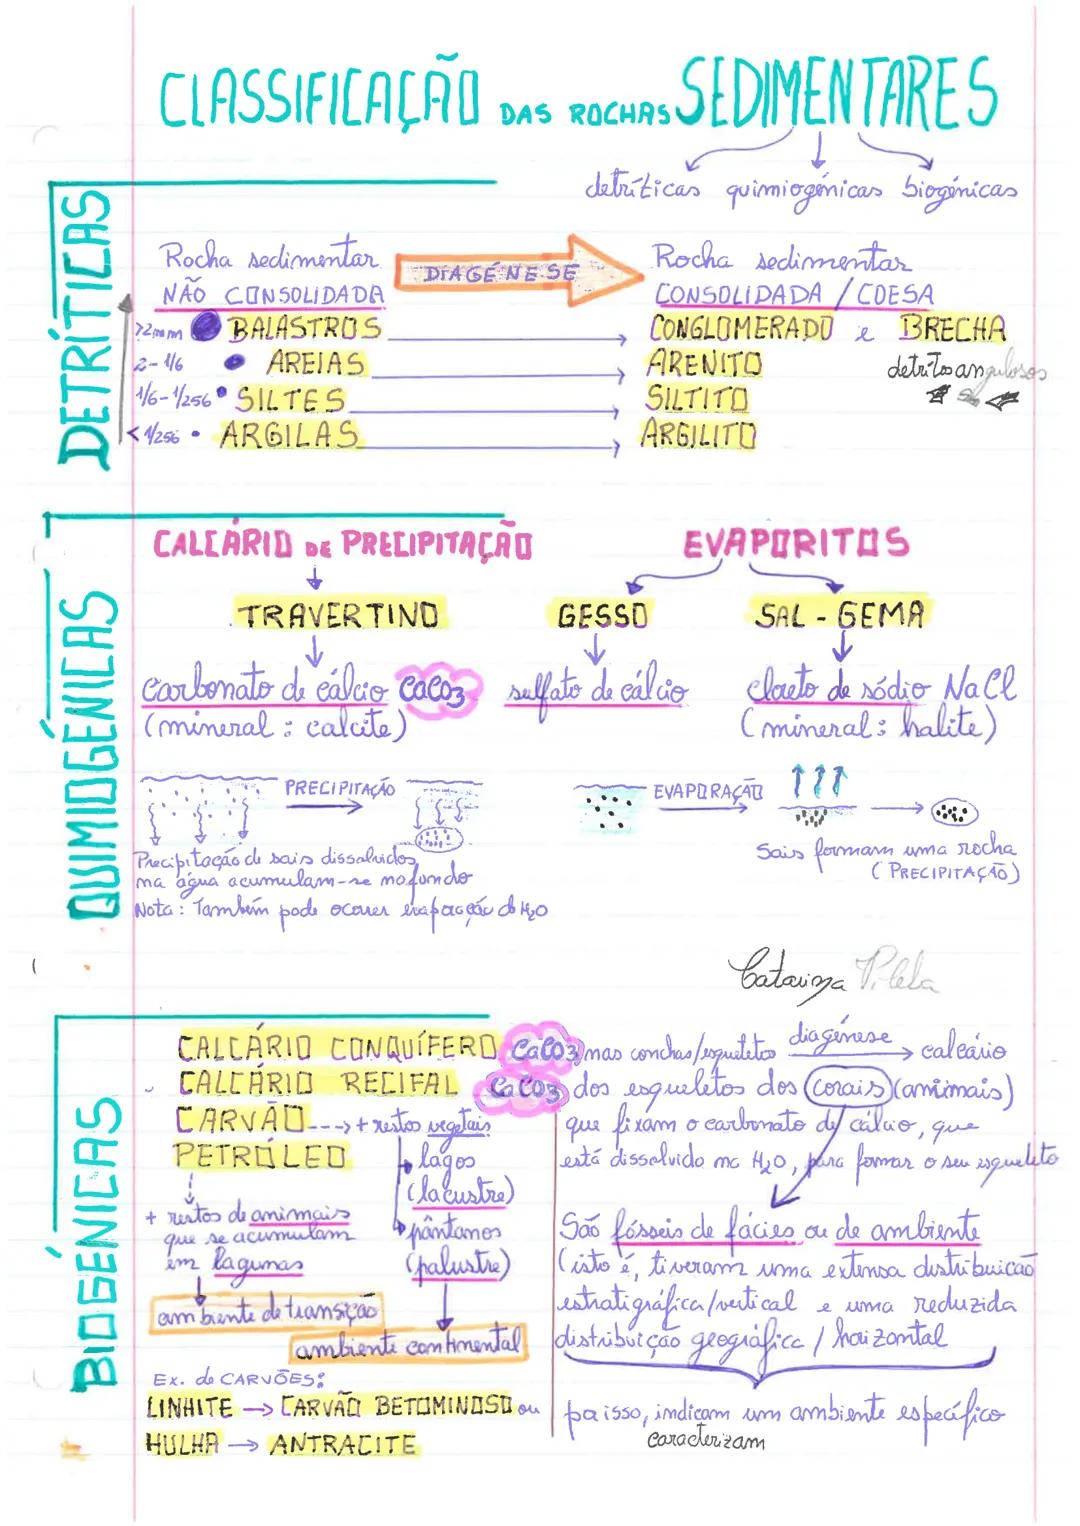 CLASSIFICAÇÃO DAS ROCHAS SEDIMENTARES
detríticas quimiogénicas biogénicas
DETRÍTICAS
Rocha sedimentar
NÃO CONSOLIDADA
DIAGÉNESE
Rocha sedimentar
CONSOLIDADA / COESA
>2mm BALASTROS CONGLOMERADO e BRECHA
2-1/6 AREIAS ARENITO detritos angulosos
1/6-1/256 SILTES SILTITO
<1/256 ARGILAS ARGILITO
QUIMIOGÉNICAS
CALCÁRIO DE PRECIPITAÇÃO EVAPORITOS
TRAVERTINO GESSO SAL-GEMA
Carbonato de cálcio CaCO3 sulfato de cálcio cloreto de sódio NaCl
(mineral: calcite) (mineral: halite)
PRECIPITAÇÃO EVAPORAÇÃO
Precipitação de sais dissolvidos
na água acumulam-se no fundo
Nota: Também pode ocorrer evaporação de H2O
Sais formam uma rocha
(PRECIPITAÇÃO)
Catarina
BIOGÉNICAS
CALCÁRIO CONQUÍFERO CaCO3 nas conchas/esqueletos diagénese calcário
CALCÁRIO RECIFAL CaCO3 dos esqueletos dos corais (animais)
que fixam o carbonato de cálcio, que
está dissolvido na H2O, para formar o seu esqueleto
CARVÃO + restos vegetais
PETRÓLEO
lagos
(lacustre)
pântanos
(palustre)
+ restos de animais
que se acumulam
em lagunas
ambiente de transição
ambiente continental
São fósseis de fácies ou de ambiente
(isto é, tiveram uma extensa distribuicão
estratigráfica/vertical e uma reduzida
distribuição geográfica / horizontal
Ex. de CARVÕES:
LINHITE → CARVÃO BETOMINOSO ou
HULHA → ANTRACITE
po isso, indicam um ambiente específico
caracterizam